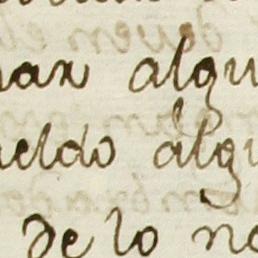 nar algu
ueldo alg
de lo no